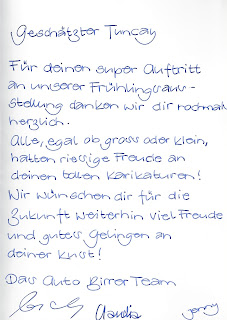 Geschätzter Tuncay
Für deinen super Auftritt
an unserer Frühlingsaus-
stellung danken wir dir nochmal
herzlich.
Alle, egal ob gross oder klein,
hatten riesige Freude an
deinen tollen Karikaturen!
Wir wünschen dir für die
Zukunft weiterhin viel Freude
und gutes Gelingen an
deiner Kunst!
Das Auto Birrer Team
Claudia Jenny